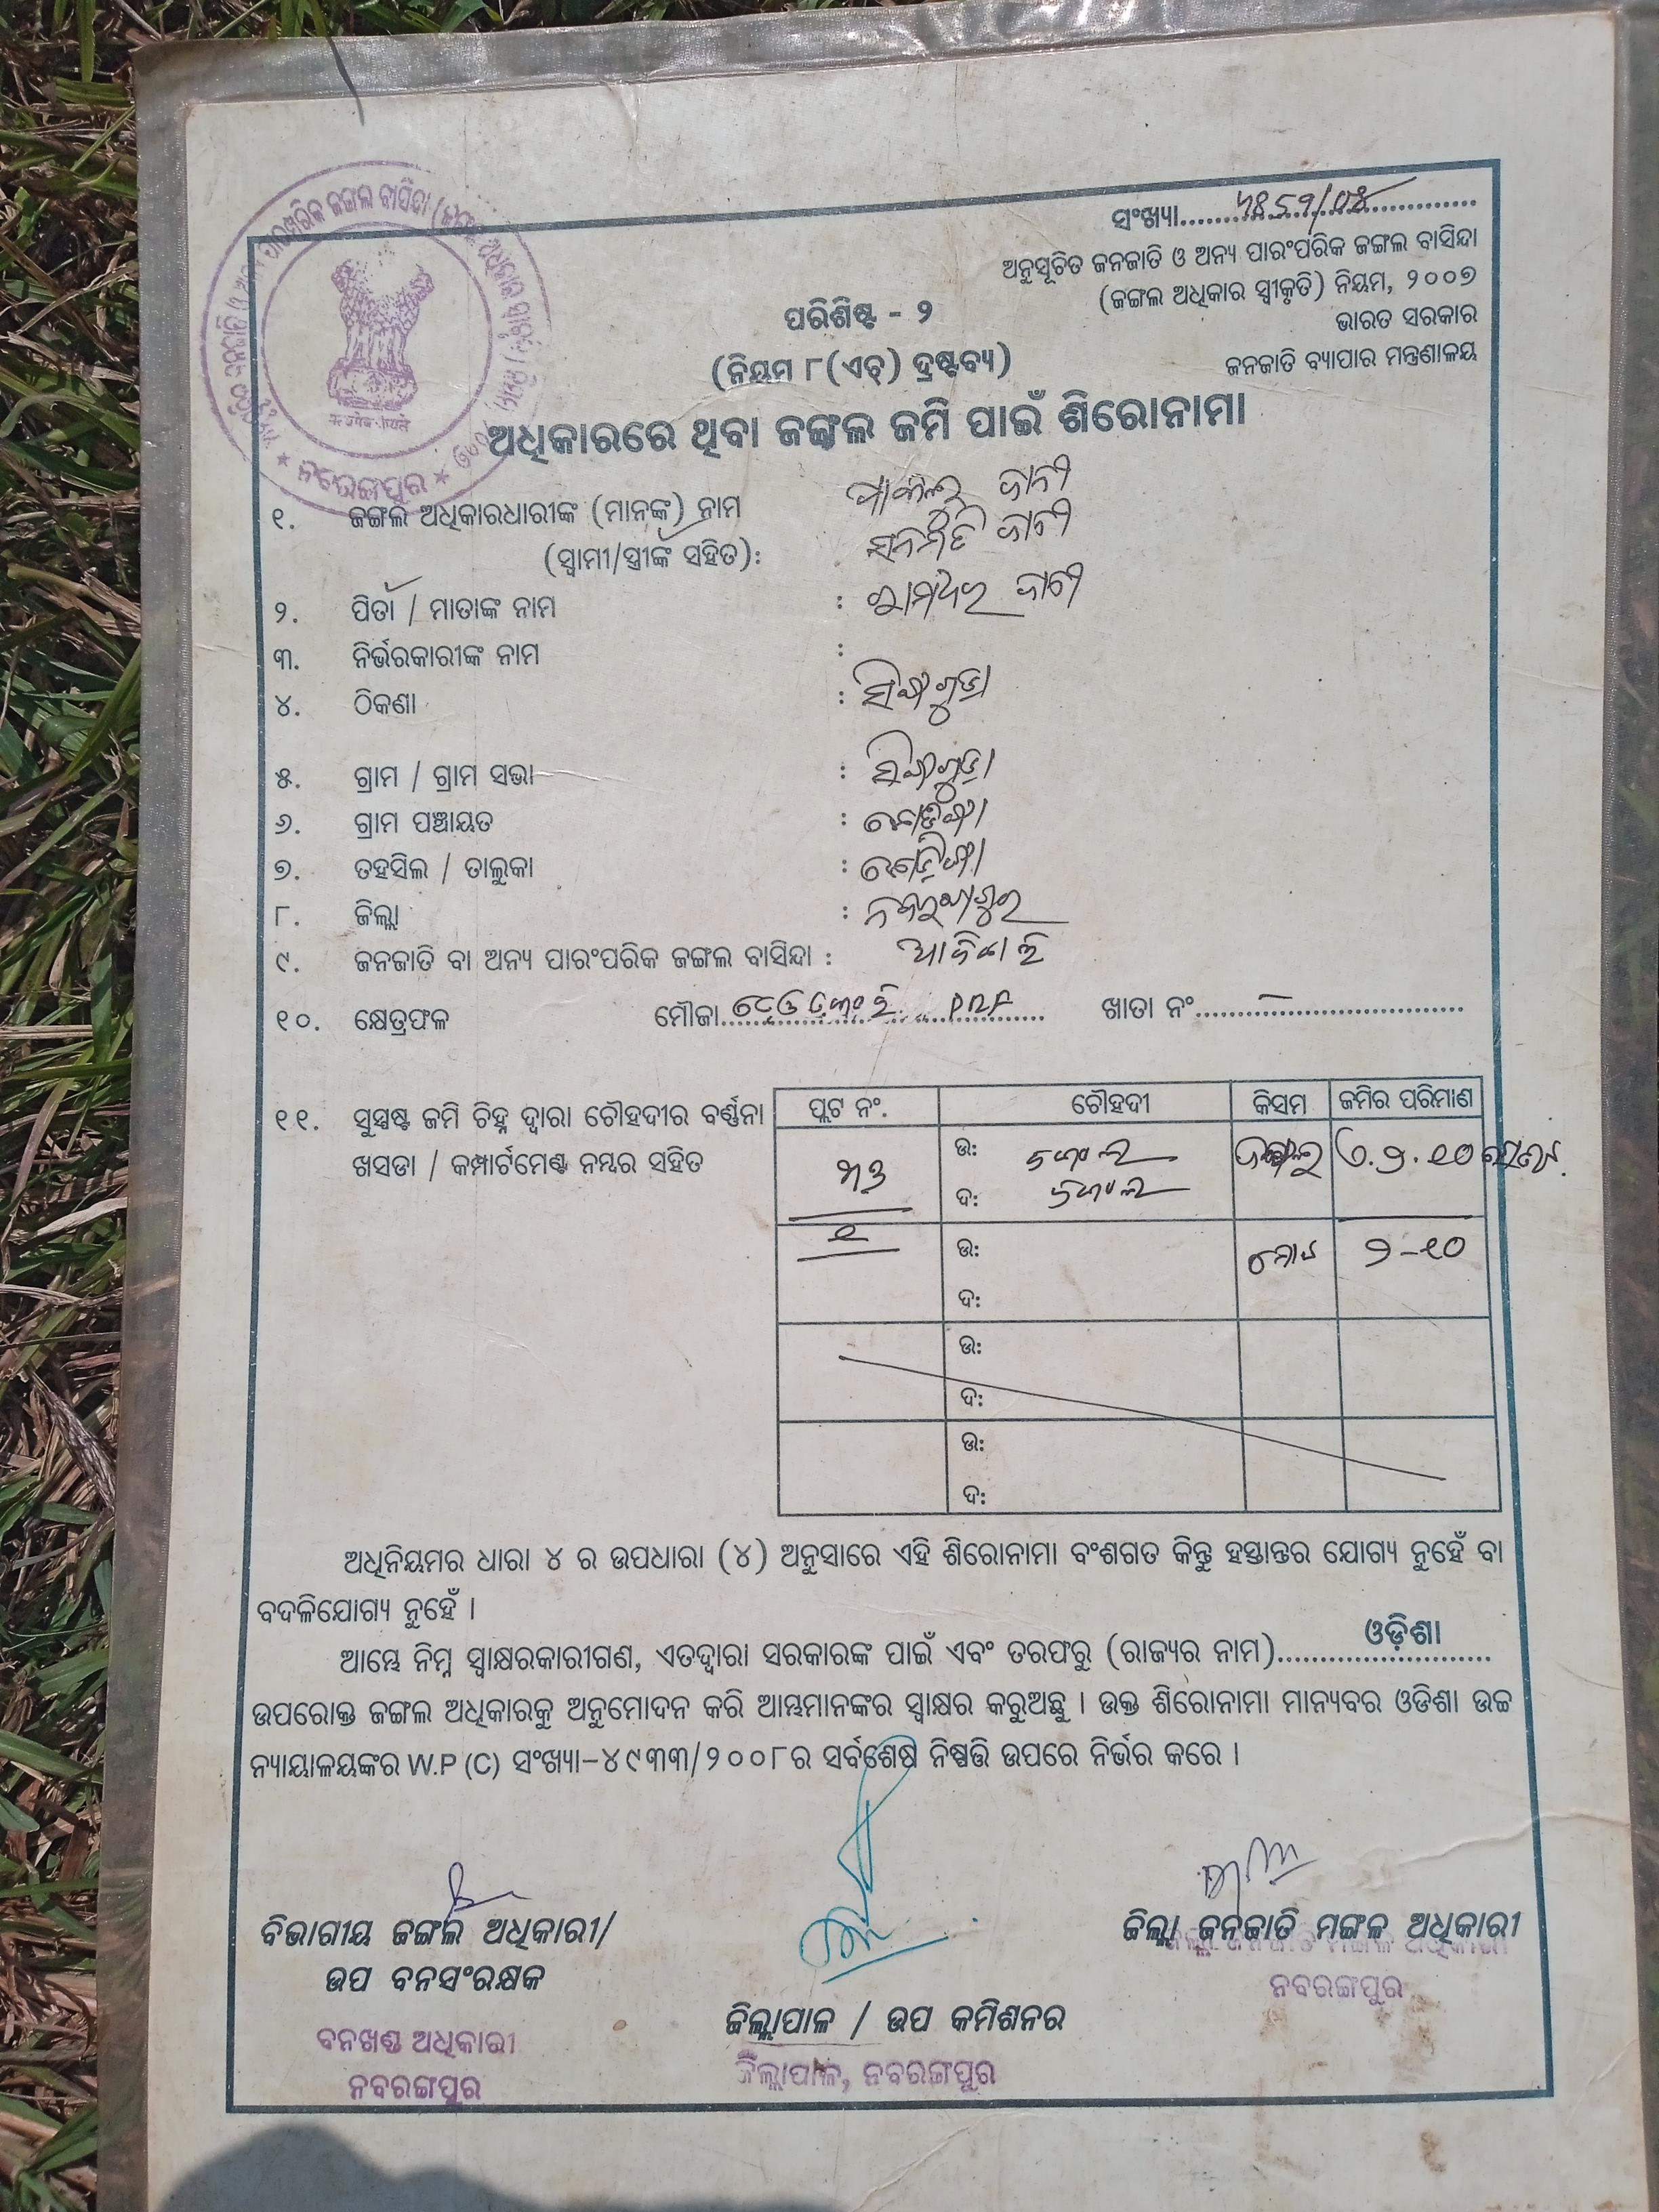 ସଂଖ୍ୟା
ଅନୁସୂଚିତ ଜନଜାତି ଓ ଅନ୍ୟ ପାରଂପରିକ ଜଙ୍ଗଲ ବାସିନ୍ଦା
(ଜଙ୍ଗଲ ଅଧିକାର ସ୍ୱୀକୃତି) ନିୟମ, ୨୦୦୭
ଭାରତ ସରକାର
ଜନଜାତି ବ୍ୟାପାର ମନ୍ତ୍ରଣାଳୟ
ପରିଶିଷ୍ଟ - ୨
(ନିୟମ ୮(ଏଚ୍) ଦ୍ରଷ୍ଟବ୍ୟ)
ଅଧିକାରରେ ଥିବା ଜଙ୍ଗଲ ଜମି ପାଇଁ ଶିରୋନାମା
ନବରଙ୍ଗପୁର
୧. ଜଙ୍ଗଲ ଅଧିକାରଧାରୀଙ୍କ (ମାନଙ୍କ) ନାମ ଜାନୀ
(ସ୍ୱାମୀ/ସ୍ତ୍ରୀଙ୍କ ସହିତ): ଜାନୀ
୨. ପିତା / ମାତାଙ୍କ ନାମ : ରାମଧର ଜାନୀ
୩. ନିର୍ଭରକାରୀଙ୍କ ନାମ :
୪. ଠିକଣା :
୫. ଗ୍ରାମ / ଗ୍ରାମ ସଭା :
୬. ଗ୍ରାମ ପଞ୍ଚାୟତ :
୭. ତହସିଲ / ତାଲୁକା :
୮. ଜିଲ୍ଲା : ନବରଙ୍ଗପୁର
୯. ଜନଜାତି ବା ଅନ୍ୟ ପାରଂପରିକ ଜଙ୍ଗଲ ବାସିନ୍ଦା : ଆଦିବାସି
୧୦. କ୍ଷେତ୍ରଫଳ ମୌଜା PRF ଖାତା ନଂ –
୧୧. ସୁସ୍ପଷ୍ଟ ଜମି ଚିହ୍ନ ଦ୍ୱାରା ଚୌହଦୀର ବର୍ଣ୍ଣନା
ଖସଡା / କମ୍ପାର୍ଟମେଣ୍ଟ ନମ୍ବର ସହିତ
ପ୍ଲଟ ନଂ. ଚୌହଦୀ କିସମ ଜମିର ପରିମାଣ
ଉ: ଜଙ୍ଗଲ
ଦ:
ଉ: ମୋଟ ୨-୧୦
ଦ:
ଉ:
ଦ:
ଉ:
ଦ:
ଅଧିନିୟମର ଧାରା ୪ ର ଉପଧାରା (୪) ଅନୁସାରେ ଏହି ଶିରୋନାମା ବଂଶଗତ କିନ୍ତୁ ହସ୍ତାନ୍ତର ଯୋଗ୍ୟ ନୁହେଁ ବା
ବଦଳିଯୋଗ୍ୟ ନୁହେଁ ।
ଆମ୍ଭେ ନିମ୍ନ ସ୍ୱାକ୍ଷରକାରୀଗଣ, ଏତଦ୍ୱାରା ସରକାରଙ୍କ ପାଇଁ ଏବଂ ତରଫରୁ (ରାଜ୍ୟର ନାମ) ଓଡ଼ିଶା
ଉପରୋକ୍ତ ଜଙ୍ଗଲ ଅଧିକାରକୁ ଅନୁମୋଦନ କରି ଆମ୍ଭମାନଙ୍କର ସ୍ୱାକ୍ଷର କରୁଅଛୁ । ଉକ୍ତ ଶିରୋନାମା ମାନ୍ୟବର ଓଡିଶା ଉଚ୍ଚ
ନ୍ୟାୟାଳୟଙ୍କର W.P (C) ସଂଖ୍ୟା–୪୯୩୩/୨୦୦୮ର ସର୍ବଶେଷ ନିଷ୍ପତ୍ତି ଉପରେ ନିର୍ଭର କରେ ।
ବିଭାଗୀୟ ଜଙ୍ଗଲ ଅଧିକାରୀ/
ଉପ ବନସଂରକ୍ଷକ
ବନଖଣ୍ଡ ଅଧିକାରୀ
ନବରଙ୍ଗପୁର
ଜିଲ୍ଲାପାଳ / ଉପ କମିଶନର
ଜିଲ୍ଲାପାଳ, ନବରଙ୍ଗପୁର
ଜିଲ୍ଲା ଜନଜାତି ମଙ୍ଗଳ ଅଧିକାରୀ
ଜିଲ୍ଲା ଜନଜାତି ମଙ୍ଗଳ ଅଧିକାରୀ
ନବରଙ୍ଗପୁର